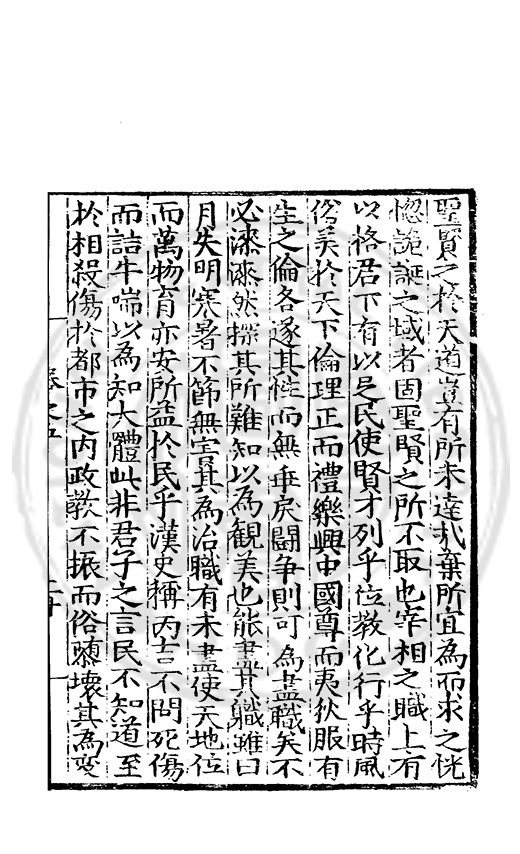 聖賢之於天道豈有所未達哉棄所宜為而求之恍
惚詭誕之域者固聖賢之所不取也宰相之職上有
以格君下有以足民使賢才列乎位教化行乎時風
俗美於天下倫理正而禮樂興中國尊而夷狄服有
生之倫各遂其性而無乖戾鬪争則可為盡職矣不
必漆漆然探其所難知以為觀美也能盡其職雖日
月失明寒暑不節無害其為治職有未盡使天地位
而萬物育亦安所益於民乎漢史稱丙吉不問死傷
而詰牛喘以為知大體此非君子之言民不知道至
於相殺傷於都市之内政教不振而俗隳壞其為變
卷之五